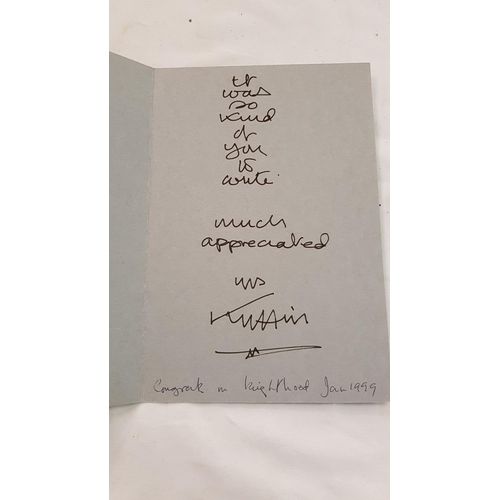 It
was
so
kind
of
you
to
write
much
appreciated
Congrats on Knighthood Jan 1999